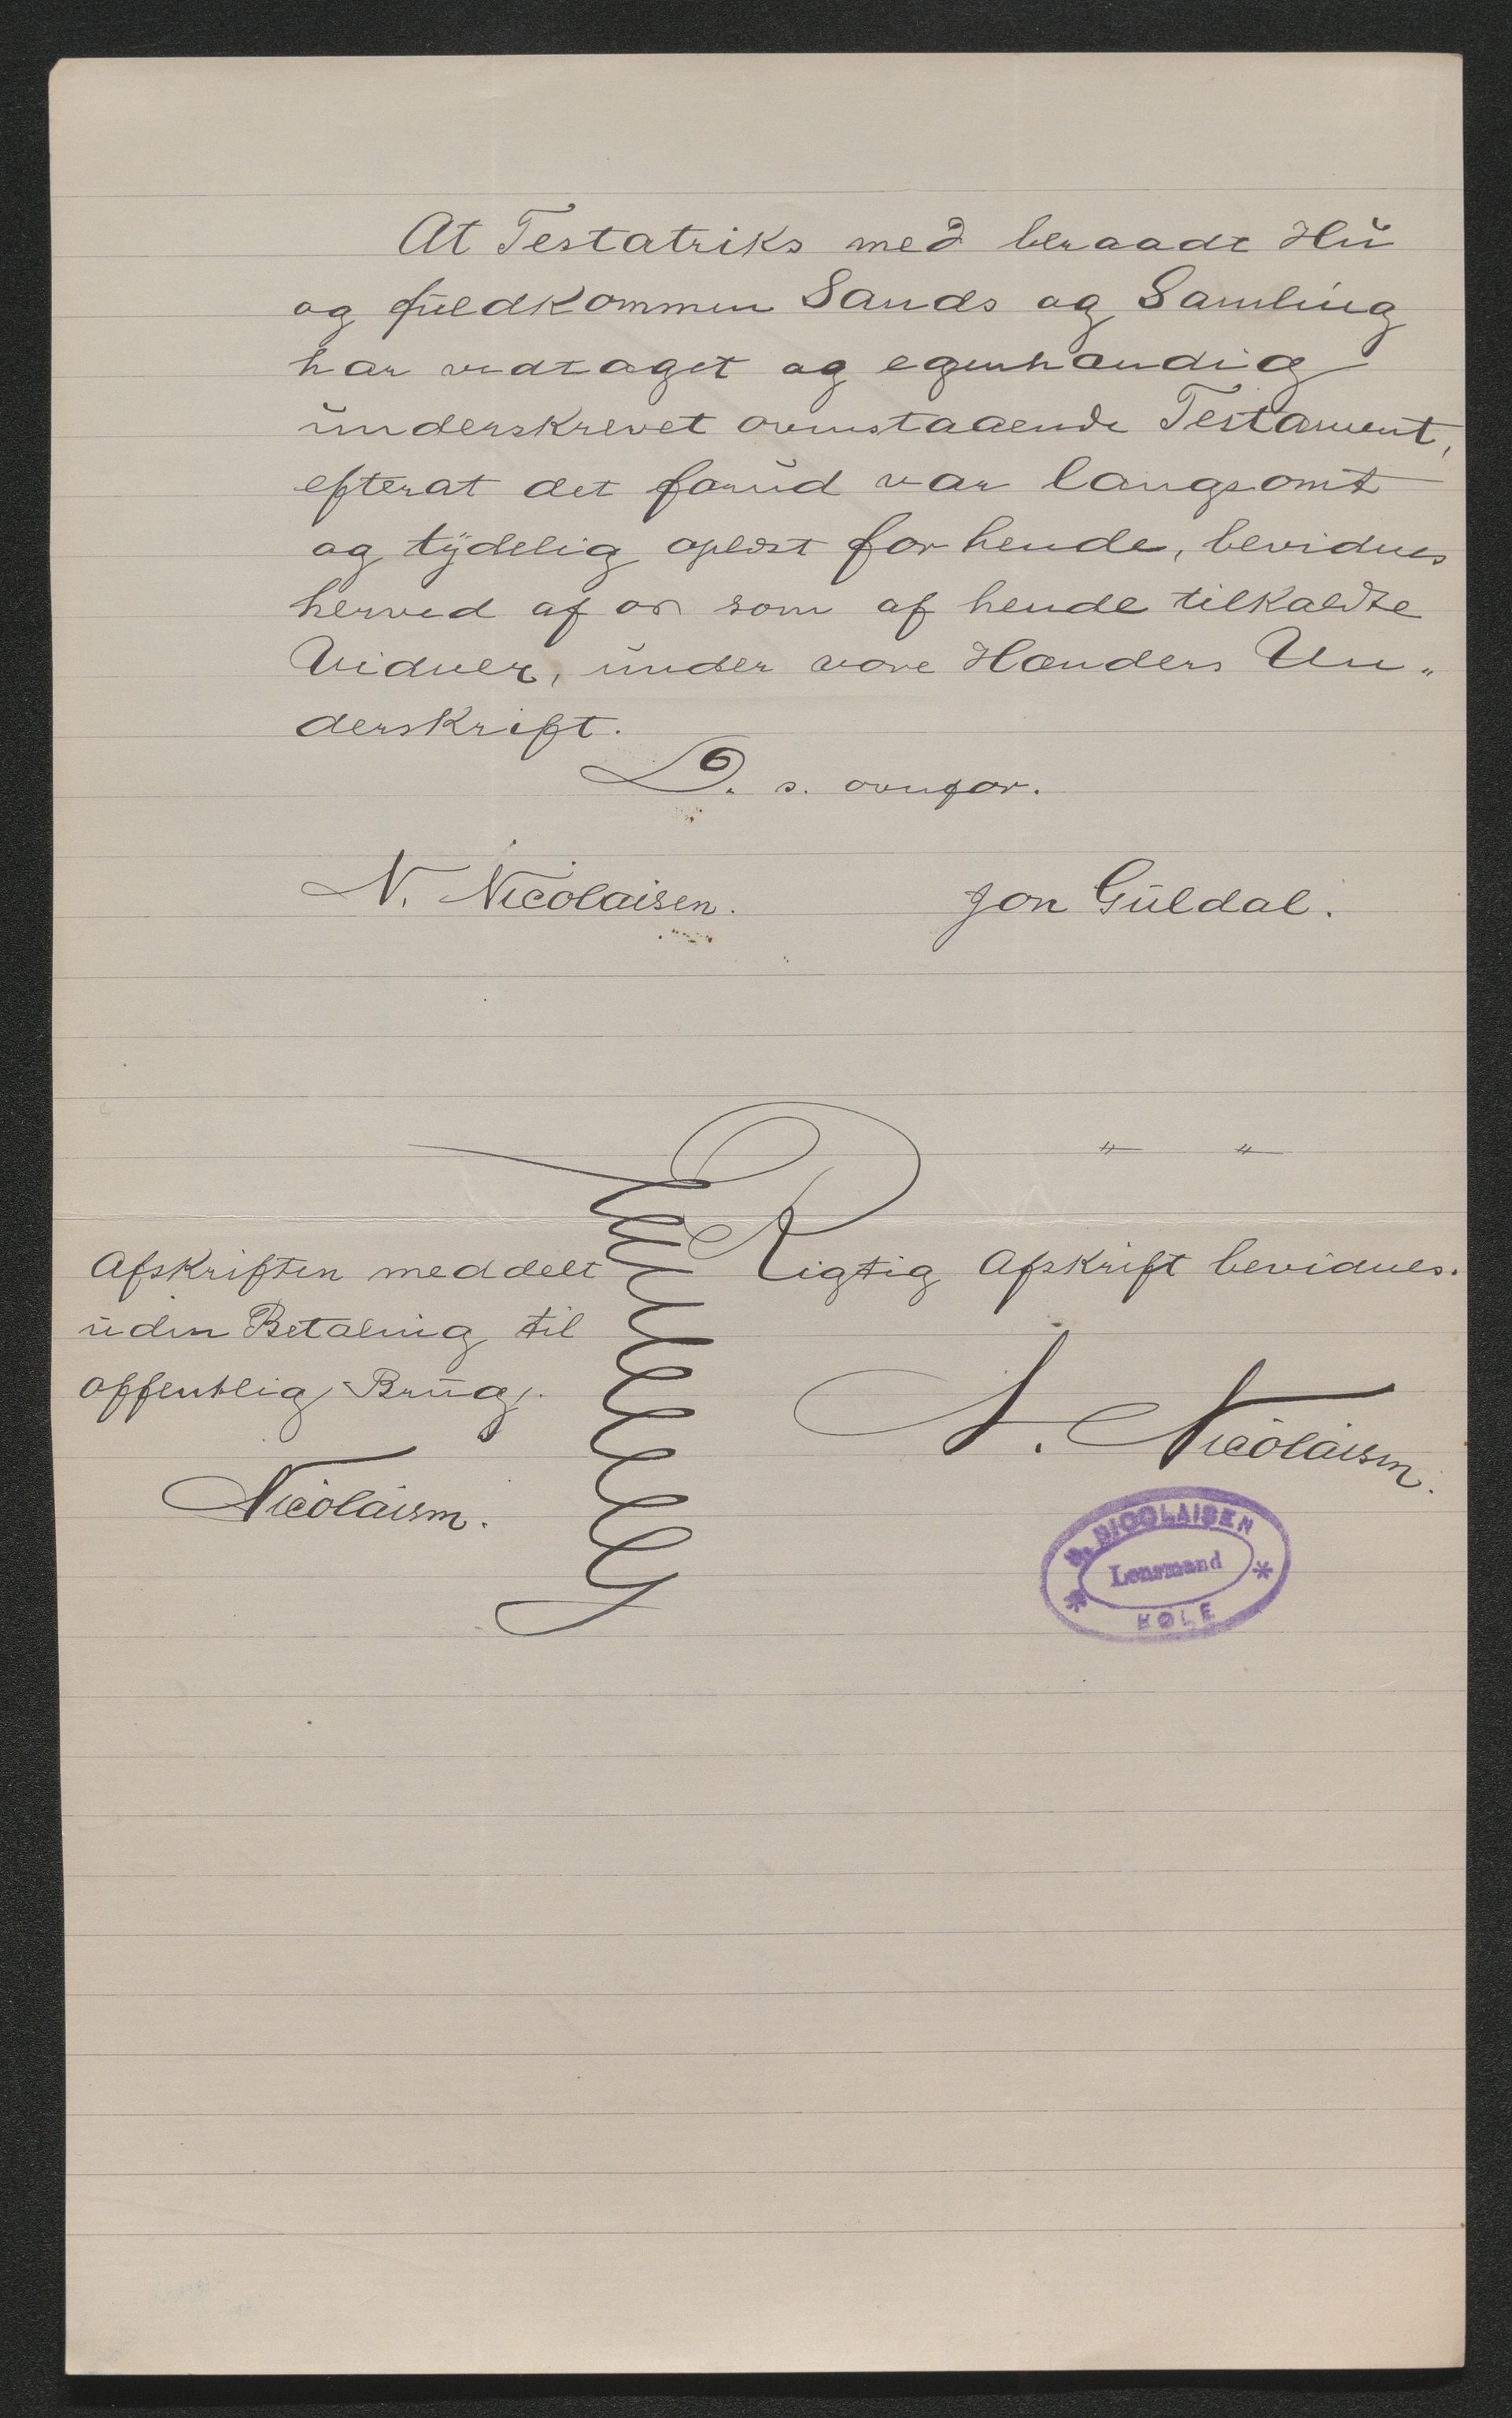 At Testatriks med beraadt Hu
og fuldkommen Sands og Samling
har vedtaget og egenhændig
underskrevet ovenstaaende Testament,
efterat det forud var langsomt
og tydelig oplæst for hende, bevidnes
herved af os som af hende tilkaldte
Vidner, under vore Hænders Un„
derskrift.
D. s. ovenfor.
N. Nicolaisen. Jon Guldal.
„ „
Rigtig Afskrift bevidnes.
N. Nicolaisen.
Afskriften meddelt
uden Betaling til
offentlig Brug.
Nicolaisen.
N. NICOLAISEN
Lensmand
* HOLE *